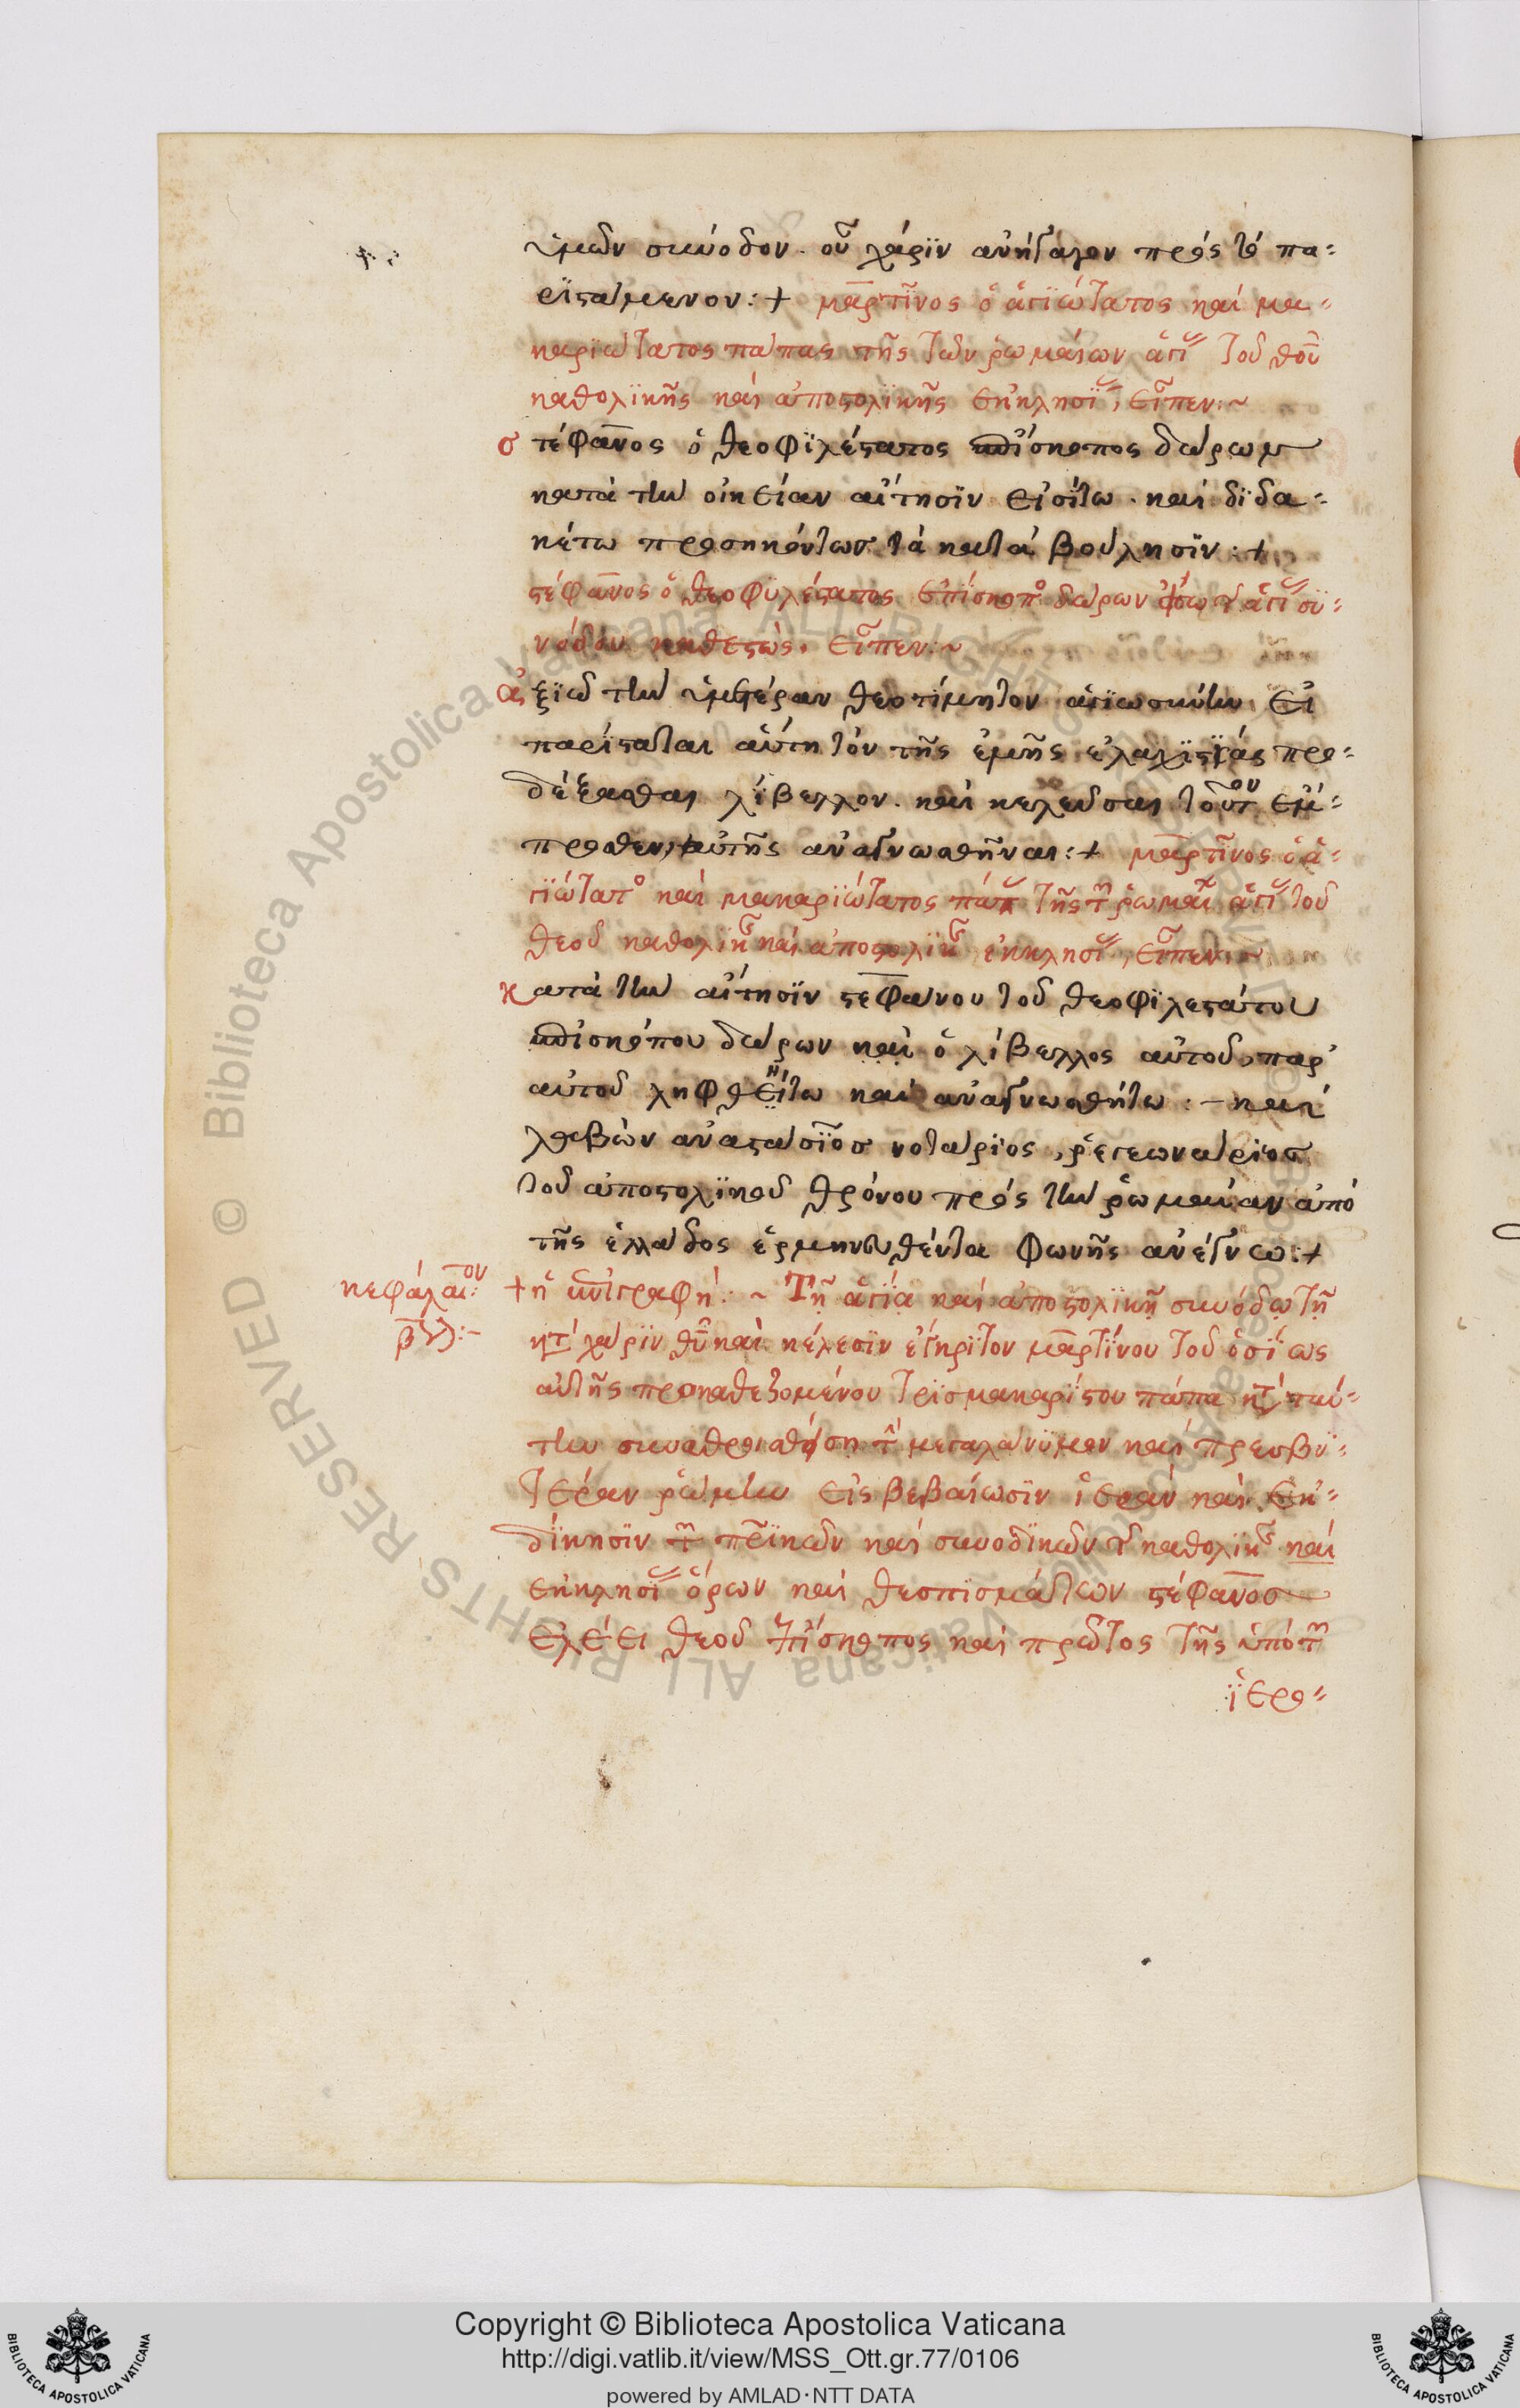 ὑμῶν σύνοδον. οὗ χάριν ἀνήγαγον πρὸς τὸ πα-
ριστάμενον:+ μαρτῖνος ὁ ἁγιώτατος καὶ μα-
καριώτατος πάπας τῆς τῶν ῥωμαίων ἁγί τοῦ θοῦ
καθολικῆς καὶ ἀποστολικῆς ἐκκλησί, εἶπεν:~
στέφανος ὁ θεοφιλέστατος ἐπίσκοπος δώρων
κατὰ τὴν οἰκείαν αἴτησιν εἰσίτω. καὶ διδα-
κέτω προσηκόντως τὰ κατὰ βούλησιν:+
στέφανος ὁ θεοφιλέστατος ἐπίσκοπο δώρων τ ἁγί συ-
νόδου καθεστὼς. εἶπεν:~
ἀξιῶ τὴν ὑμετέραν θεοτίμητον ἁγιωσύνην εἰ
παρίσταται αὐτῆ τὸν τῆς ἐμῆς ἐλαχιστίας προ-
δέξασθαι λίβελλον. καὶ κελεῦσαι τοῦτον ἔμ-
προσθεν αὐτῆς ἀναγνωσθῆναι:+ μαρτῖνος ὁ ἁ-
γιώτατο καὶ μακαριώτατος πάπ τῆς τ ῥωμαί ἁγί τοῦ
θεοῦ καθολικῆς καὶ ἀποστολικῆς ἐκκλησί, εἶπεν:~
κατὰ τὴν αἴτησιν στεφάνου τοῦ θεοφιλεστάτου
ἐπισκόπου δώρων καὶ ὁ λίβελλος αὐτοῦ παρ'
αὐτοῦ ληφθείτω καὶ ἀναγνωσθήτω:- καὶ
λαβὼν ἀναστάσιος νοτάριος, ῥεγεωνάριος
τοῦ ἀποστολικοῦ θρόνου πρὸς τὴν ῥωμαίαν ἀπὸ
τῆς ἑλλάδος ἑρμηνευθέντα φωνῆς ἀνέγνω:+
κεφάλαιον:
βον:-
+ἡ ἐπιγραφή:~ Τῆ ἁγία καὶ ἀποστολικῆ συνόδω τῆ
κτ χάριν θυ καὶ κέλεσιν ἐγκριτον μαρτίνου τοῦ ὁσίως
αὐτῆς προκαθεζομένου τρισμακαρίστου πάπα κτ ταύ-
την συναθροισθείση τ μεγαλωνύμου καὶ πρεσβυ-
τέραν ῥώμην εἰς βεβαίωσιν ἱερὰν καὶ ἐκ-
δίκησιν τ πρικῶν καὶ συνοδικῶν τ καθολικῆς καὶ
ἐκκλησί ὅρων καὶ θεσπισμάτων στέφανος
ἐλέει θεοῦ ἐπίσκοπος καὶ πρῶτος τῆς ὑπὸ τ
ἱερο-
Copyright © Biblioteca Apostolica Vaticana
http://digi.vatlib.it/view/MSS_Ott.gr.77/0106
powered by AMLAD·NTT DATA